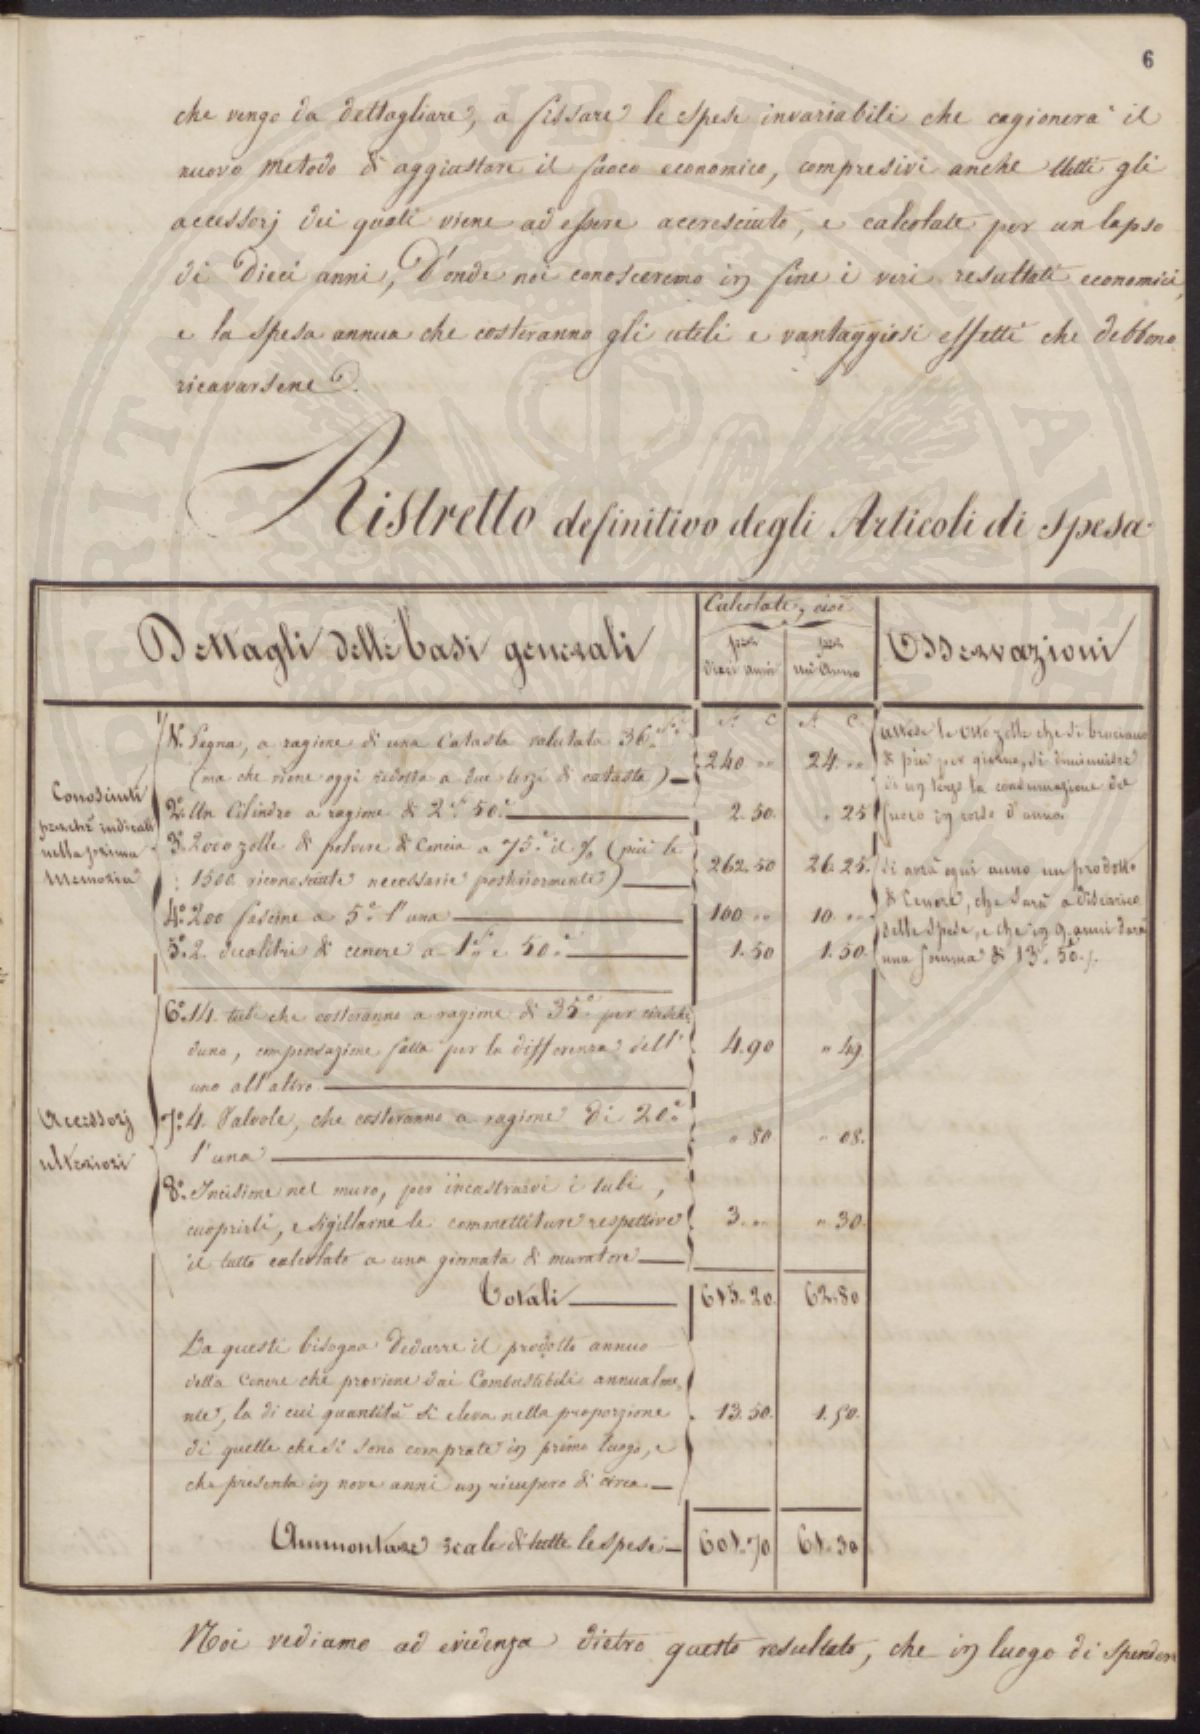 6
che vengo da dettagliare, a fissare le spese invariabili che cagionerà il
nuovo metodo di aggiustare il fuoco economico, compresivi anche tutti gli
accessorj dei quali viene ad essere accresciuto, e calcolate per un lapso
di Dieci anni, D'onde noi conosceremo in fine i veri resultati economici,
e la spesa annua che costeranno gli utili e vantaggiosi effetti che debbono
ricavarsene.
Ristretto definitivo degli Articoli di spesa.
Dettagli delle basi generali
Calcolate, cioè
per Dieci anni
per un Anno
Osservazioni
Conosciuti
perchè indicati
nella prima
Memoria
fr. c. fr. c.
1º. Legna, a ragione di una Catasta valutata 36. fr.
(ma che viene oggi ridotta a due terzi di catasta) 240 " 24. "
2º. Un Cilindro a ragione di 2 fr. 50 c. 2. 50. " 25
3º. 2000 zolle di polvere di Concia a 75 c. il % (più le
1500 riconosciute necessarie posteriormente) 262. 50 26. 25.
4º. 200 fascine a 5 c. l'una 100 " 10. "
5º. 2 decalitri di cenere a 1 fr. e 50 c. 1. 50 1. 50.
Attese le otto zolle che si bruciano
di più per giorno, si diminuisce
di un terzo la consumazione del
fuoco in corso d'anno.
Si avrà ogni anno un prodotto
di Cenere, che sarà a discarico
delle spese, e che in 9. anni darà
una somma di 13 f. 50 c.
Accessorj
ulteriori
6º. 14. tubi che costeranno a ragione di 35 c. per ciasche-
duno, compensazione fatta per la differenza dell'
uno all'altro 4. 90 " 49.
7º. 4. Valvole, che costeranno a ragione di 20 c.
l'una " 80 " 08.
8º. Incisione nel muro, per incastrarvi i tubi,
cuoprirli, e sigillarne le commettiture respettive
il tutto calcolato a una giornata di muratore 3. " " 30.
Totali 615. 20. 62. 80
Da questi bisogna dedurre il prodotto annuo
della Cenere che proviene dai Combustibili annualme-
nte, la di cui quantità si eleva nella proporzione
di quelle che si sono comprate in primo luogo, e
che presenta in nove anni un ricupero di circa 13. 50. 1. 50.
Ammontare reale di tutte le spese 601. 70 61. 30
Noi vediamo ad evidenza dietro questo resultato, che in luogo di spendere